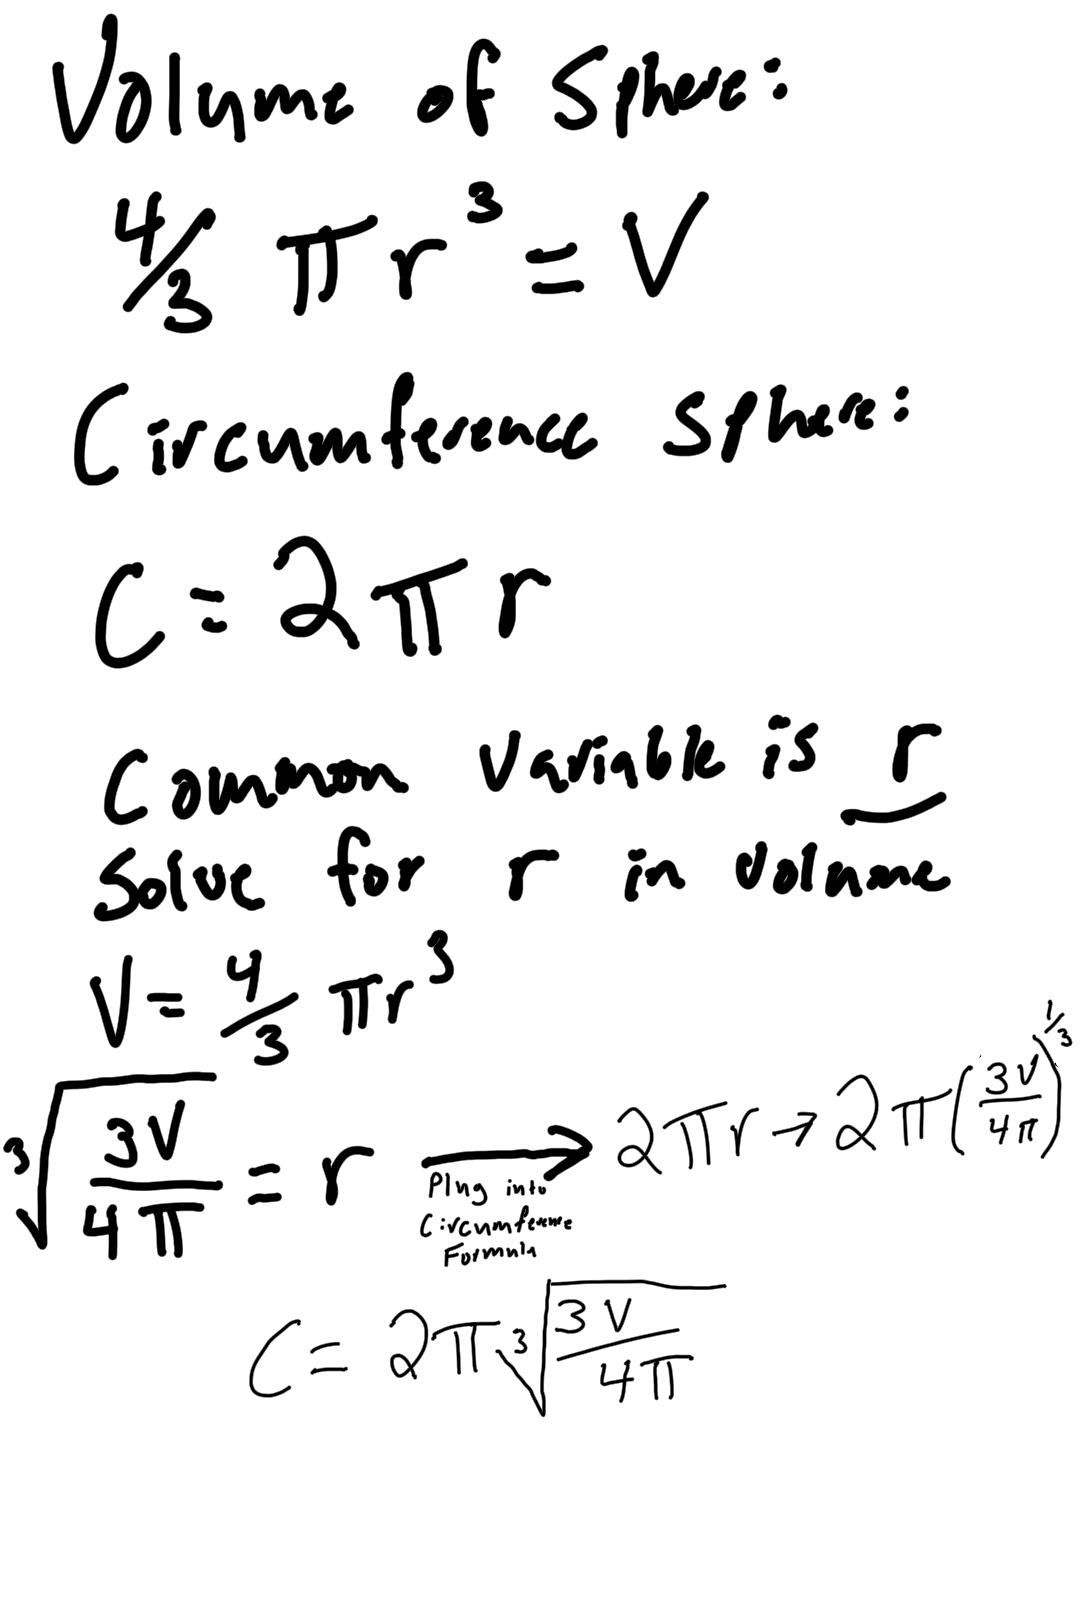 Volume of Sphere:
4/3 πr³ = V
Circumference Sphere:
C = 2πr
Common Variable is r
Solve for r in Volume
V = 4/3 πr³
∛(3V/4π) = r → 2πr → 2π(3V/4π)^1/3
Plug into
Circumference
Formula
C = 2π∛(3V/4π)